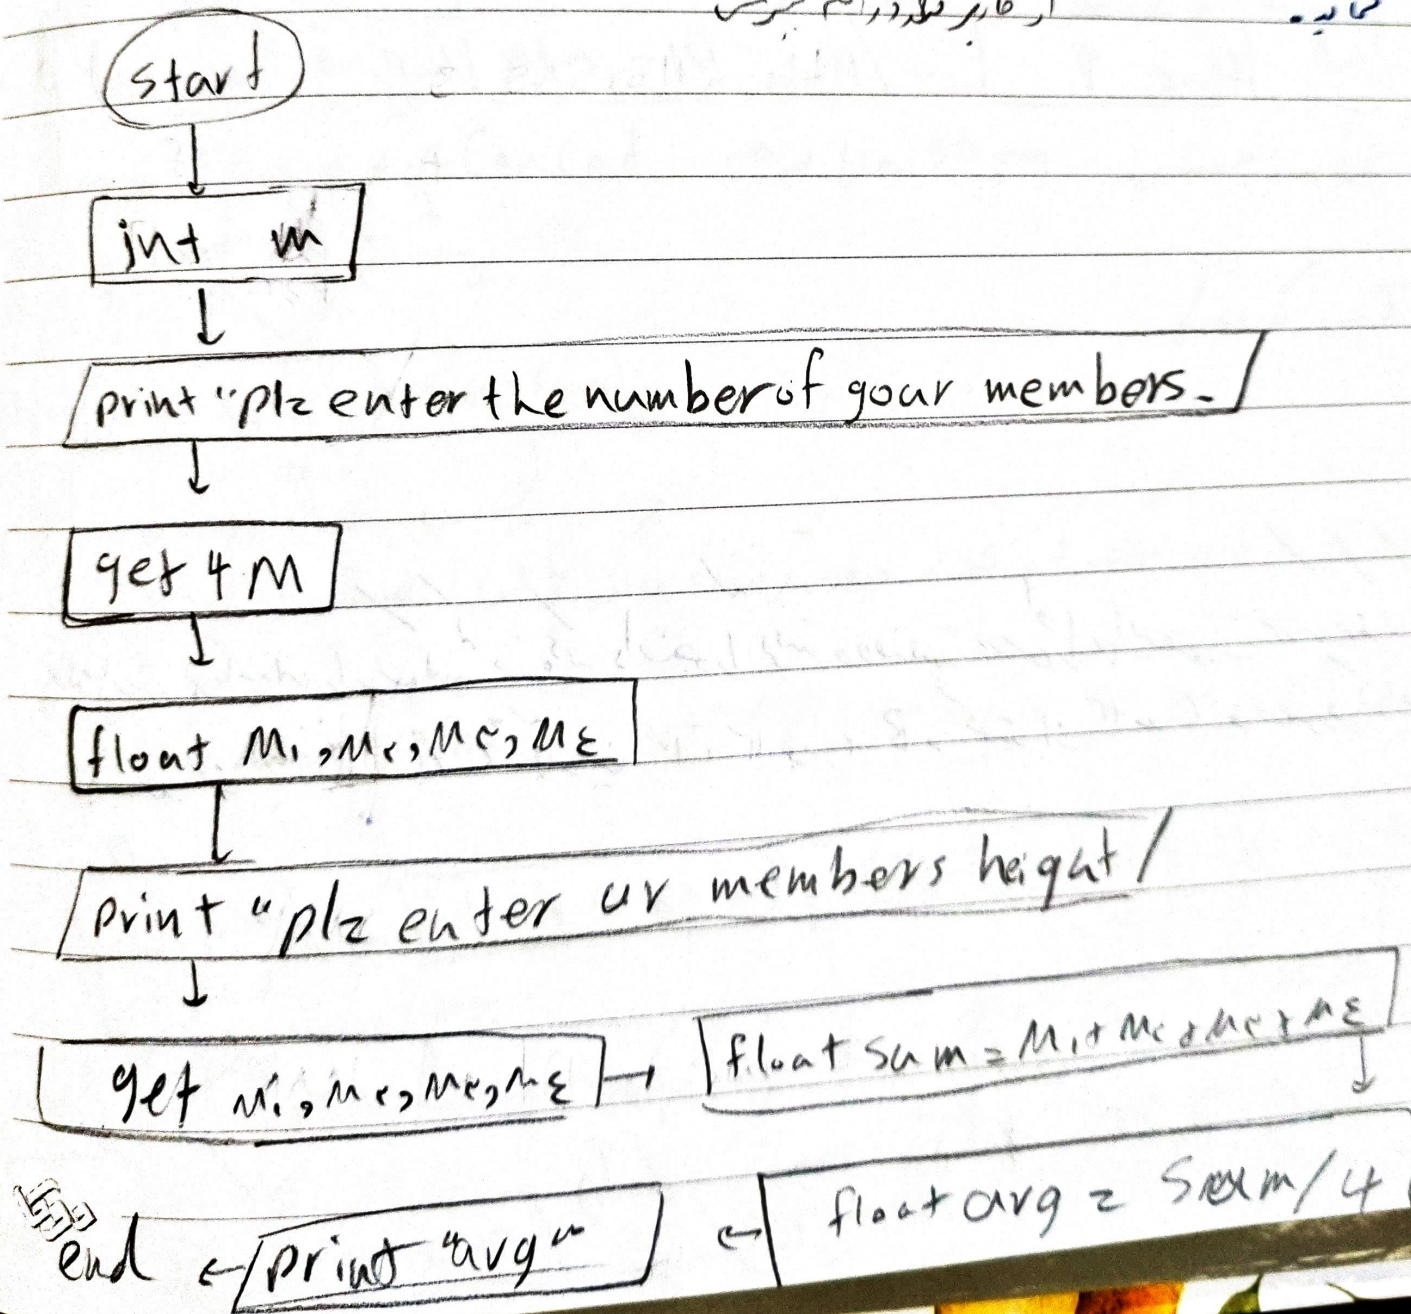 start
int m
print "plz enter the number of your members.
get 4 M
float M۱, M۲, M۳, M۴
print "plz enter ur members height
get M۱, M۲, M۳, M۴
float sum = M۱ + M۲ + M۳ + M۴
float avg = sum / 4
print "avg"
end